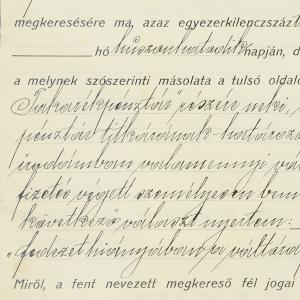 megkeresésére ma, azaz egyezerkilenczszáz
hó huszonhatodik napján, d
a melynek szószerinti másolata a tulsó oldalo
Takarékpénztár" részére neki,
pénztár titkárának - határozo
irodámban valamennyi
fizetés végett személyesen bem
következő választ nyertem:
"fedezet hiányában a váltó
Miről, a fent nevezett megkereső fél jogai